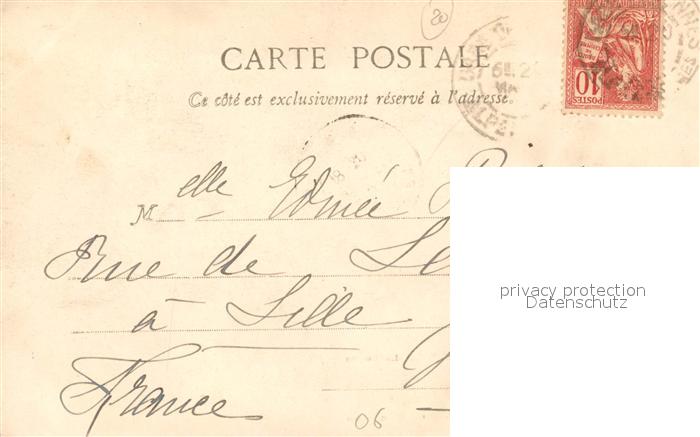 20
CARTE POSTALE
Ce côté est exclusivement réservé à l'adresse.
10
POSTES
Melle Edmée
Rue de
à Lille
France
06
privacy protection
Datenschutz